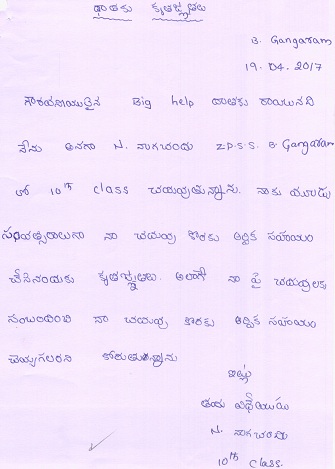 దాతకు కృతజ్ఞతలు
B. Gangaram
19.04.2017
గౌరవనీయులైన Big help దాతకు రాయునది
నేను అనగా N. నాగచందు Z.P.S.S. B. Gangaram
లో 10th class చదువుతున్నాను. నాకు మూడు
సంవత్సరాలుగా నా చదువు కొరకు ఆర్థిక సహాయం
చేసినందుకు కృతజ్ఞతలు. అలాగే నా పై చదువులకు
సంబంధించి నా చదువు కొరకు ఆర్థిక సహాయం
చెయ్యగలరని కోరుతున్నాను
ఇట్లు
తమ విధేయుడు
N. నాగచందు
10th class.